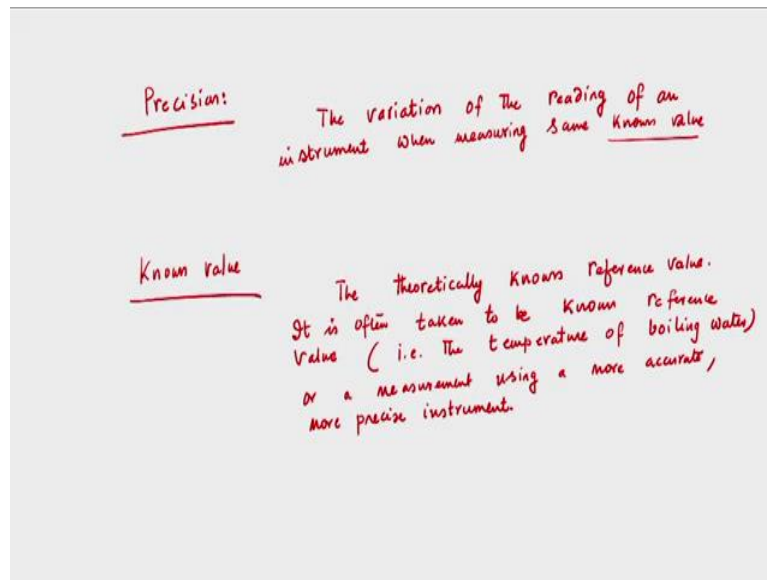 Precision:
The variation of The reading of an
instrument when measuring same Known value
Known value
The theoretically Known reference value.
It is often taken to be Known reference
value ( i.e. The temperature of boiling water)
or a measurement using a more accurate,
more precise instrument.